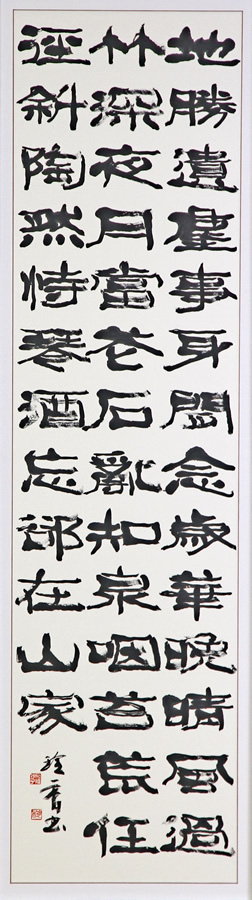 地勝遺塵事身閒念歲華晚晴風過
竹深夜月當花石亂知泉咽苔荒任
徑斜陶然恃琴酒忘卻在山家
書